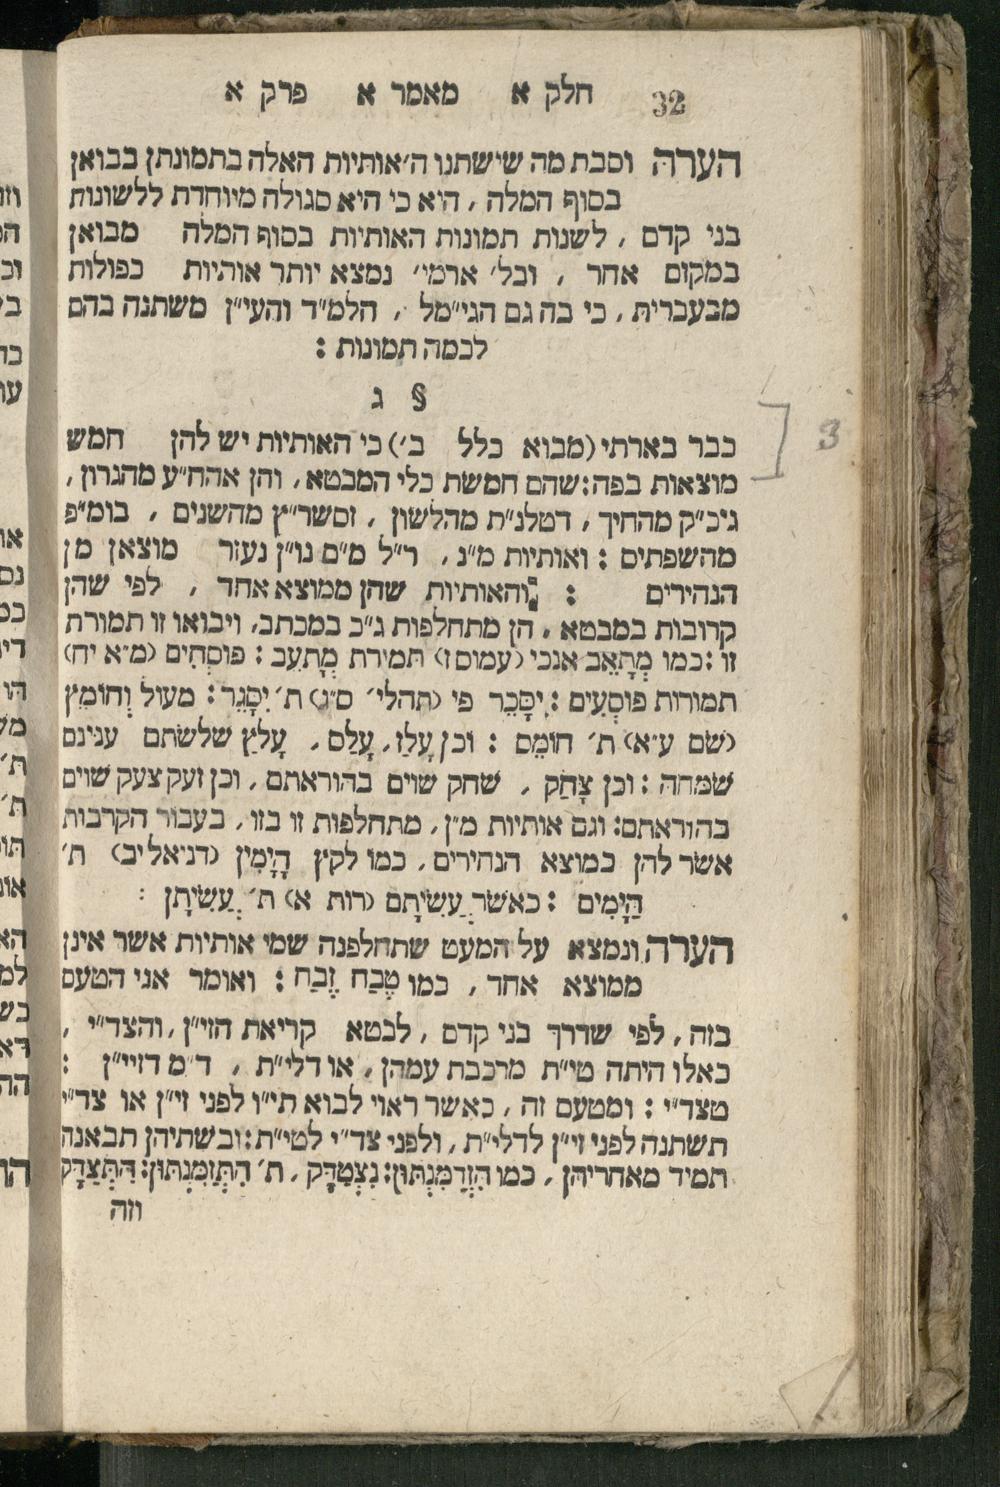 32 חלק א מאמר א פרק א
הערה וסבת מה שישתנו ה׳אותיות האלה בתמונתן בבואן
בסוף המלה , היא כי היא סגולה מיוחדת ללשונות
בני קדם , לשנות תמונות האותיות בסוף המלה מבואן
במקום אחר , ובל׳ ארמי׳ נמצא יותר אותיות כפולות
מבעברית , כי בה גם הגי״מל , הלמ״ד והעי״ן משתנה בהם
לכמה תמונות :
§ ג
כבר בארתי (מבוא כלל ב׳) כי האותיות יש להן חמש
מוצאות בפה : שהם חמשת כלי המבטא , והן אהח״ע מהגרון ,
גיכ״ק מהחיך , דטלנ״ת מהלשון , זסשר״ץ מהשנים , בומ״פ
מהשפתים : ואותיות מ״נ , ר״ל מ״ם נו״ן נעזר מוצאן מן
הנהירים : והאותיות שהן ממוצא אחד , לפי שהן
קרובות במבטא , הן מתחלפות ג״כ במכתב , ויבואו זו תמורת
זו : כמו מְתָאֵב אנכי (עמוס ז) תמירת מְתָעֵב : פוסְחִים (מ״א יח)
תמורות פוֹסְעִים : יִסָּכֵר פי (תהלי׳ ס״ג) ת׳ יִסָּגֵר : מעול וְחוֹמֵץ
(שם ע״א) ת׳ חוֹמֵס : וכן עָלַז , עָלַס , עָלַץ שלשתם ענינם
שמחה : וכן צָחַק , שחק שוים בהוראתם , וכן זעק צעק שוים
בהוראתם : וגם אותיות מ״ן , מתחלפות זו בזו , בעבור הקרבות
אשר להן במוצא הנחירים , כמו לקץ הָיָמִין (דניאל יב) ת׳
הַיָּמִים : כאשר עֲשִׂיתָם (רות א) ת׳ עֲשִׂיתָן :
הערה ונמצא על המעט שתחלפנה שמי אותיות אשר אינן
ממוצא אחד , כמו טֶבַח זֶבַח : ואומר אני הטעם
בזה , לפי שדרך בני קדם , לבטא קריאת הזי״ן , והצד״י ,
כאלו היתה טי״ת מרכבת עמהן , או דלי״ת , ד״מ דזיי״ן :
טצד״י : ומטעם זה , כאשר ראוי לבוא תי״ו לפני זי״ן או צד״י
תשתנה לפני זי״ן לדלי״ת , ולפני צד״י לטי״ת : ובשתיהן תבאנה
תמיד מאחריהן , כמו הִזְדַמִּנְתּוּן : נִצְטַדָּק , ת׳ הִתְזַמִּנְתּוּן : הִתְצַדָּק
וזה
3